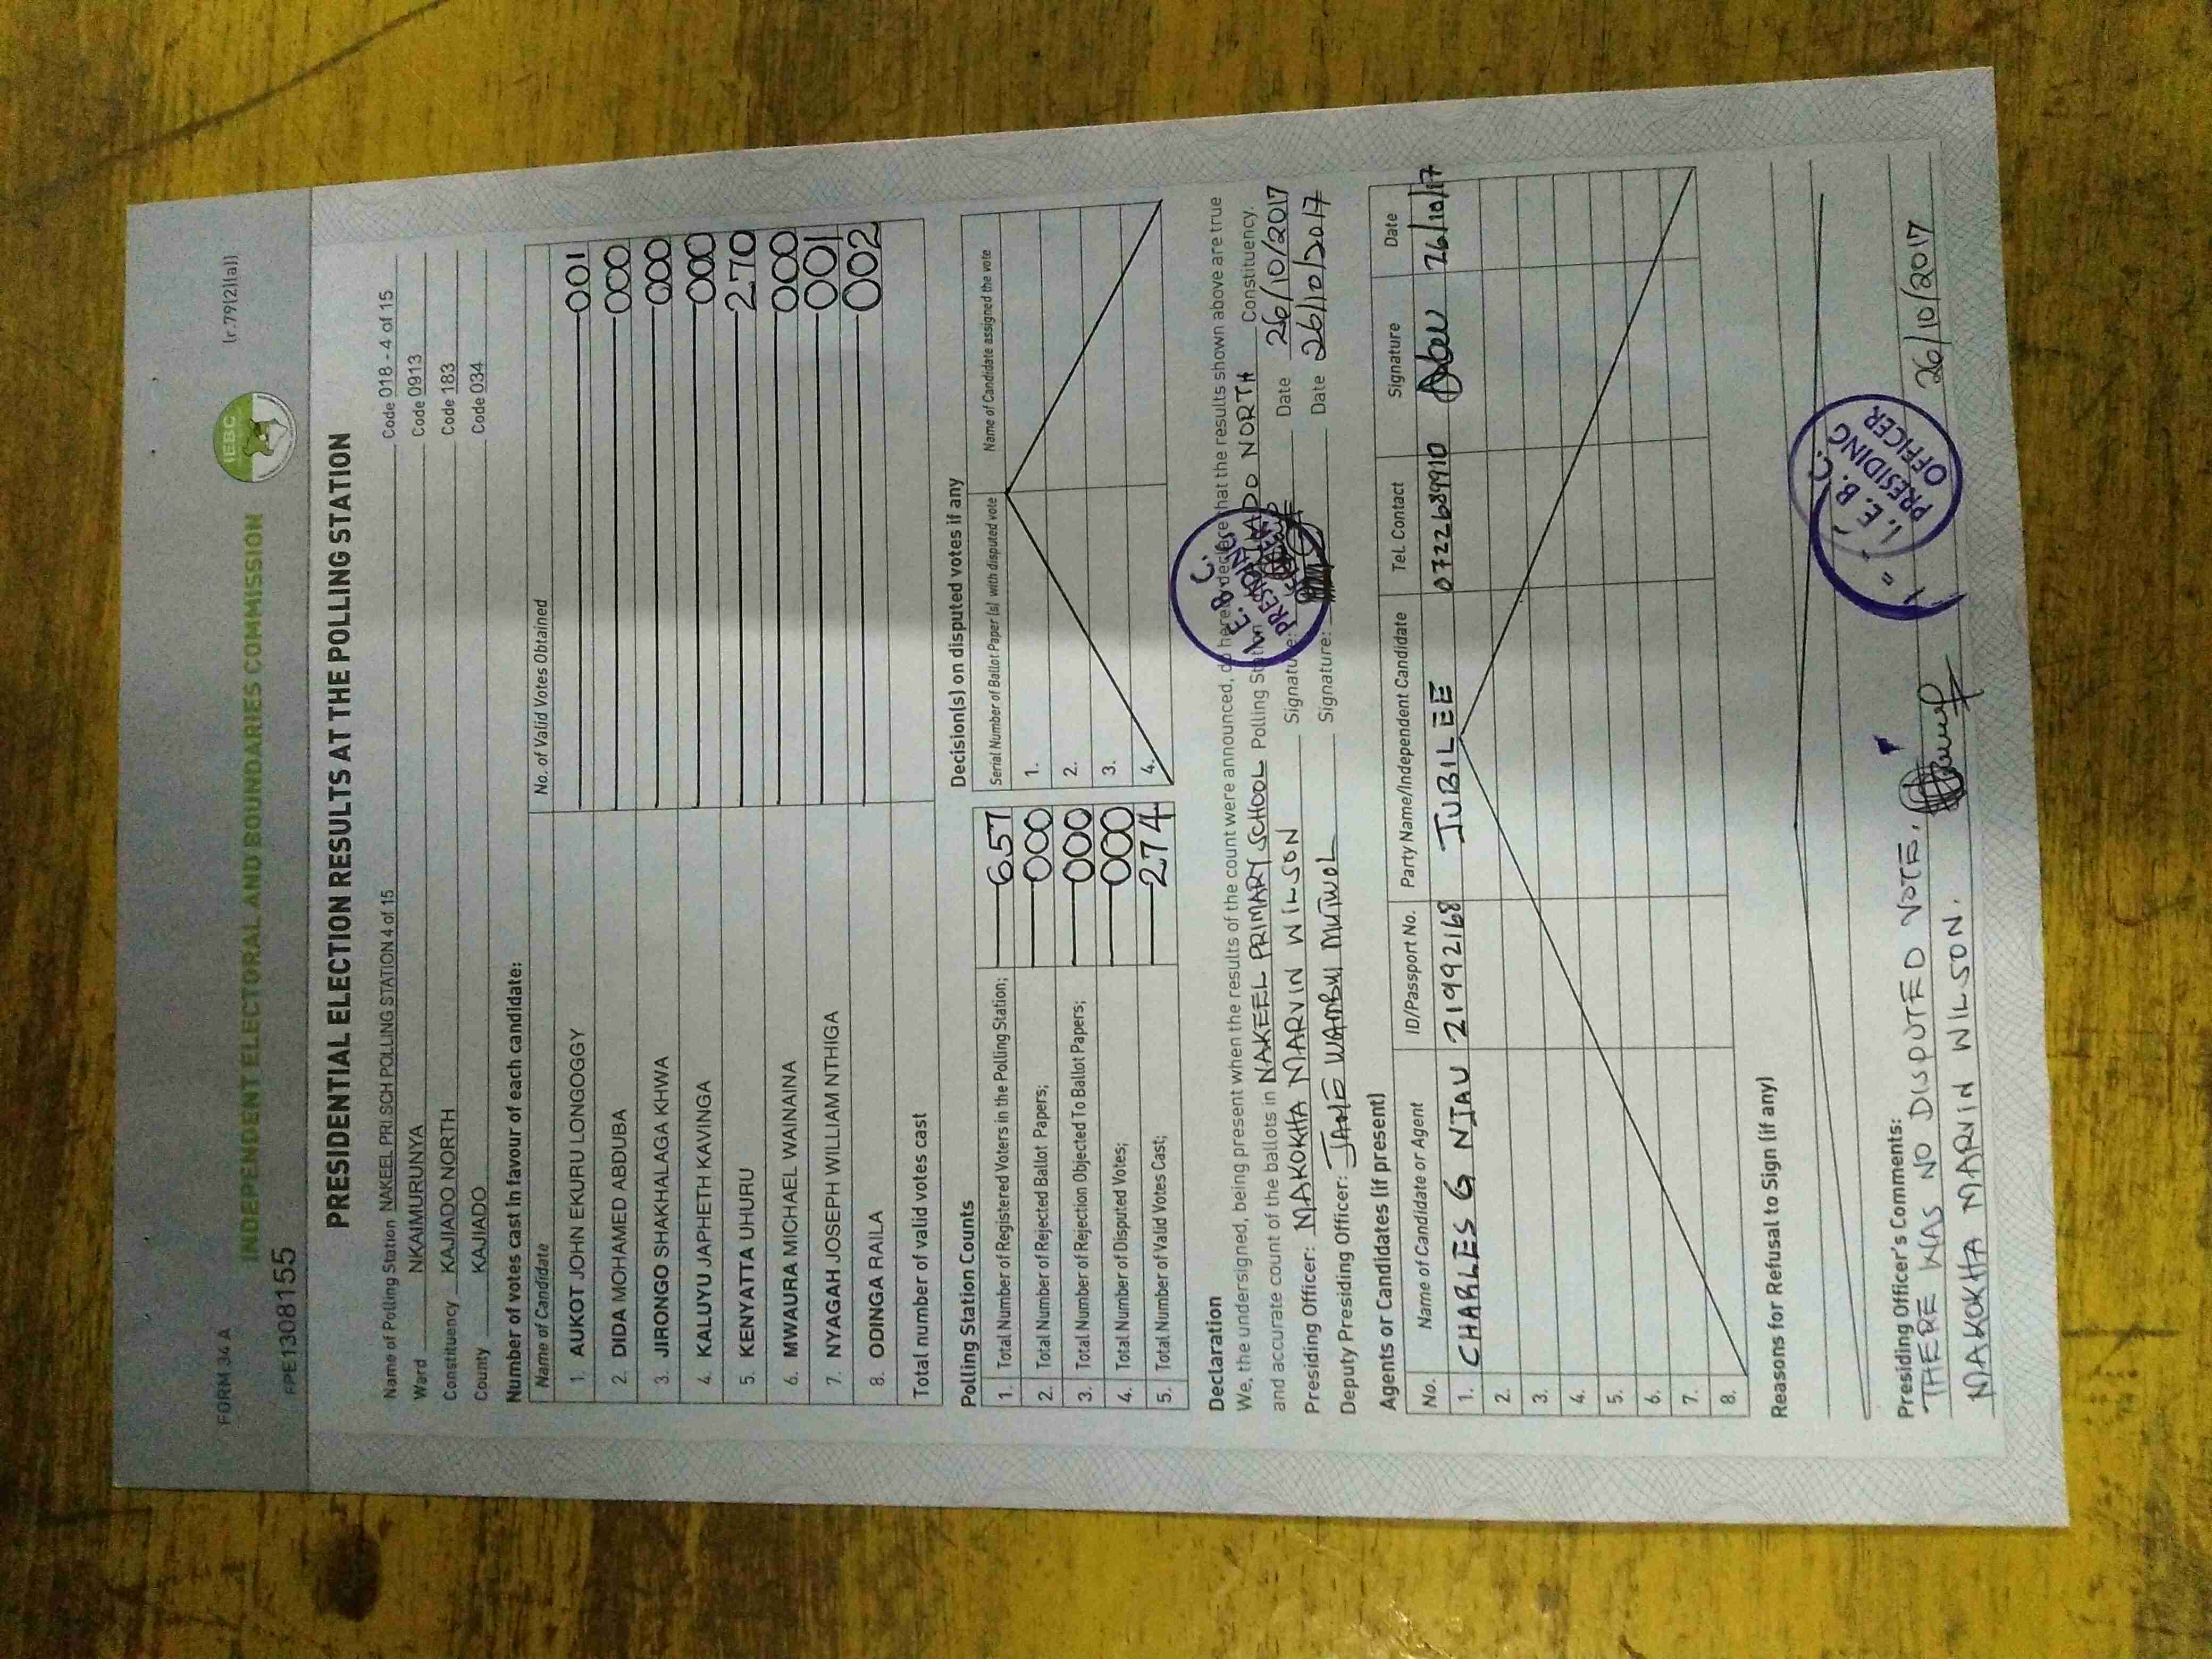 FORM 34 A
(r.79(2)(a))
IEBC
INDEPENDENT ELECTORAL AND BOUNDARIES COMMISSION
PPE1308155
PRESIDENTIAL ELECTION RESULTS AT THE POLLING STATION
Name of Polling Station NAKEEL PRI.SCH POLLING STATION 4 of 15 Code 018 - 4 of 15
Ward NKAIMURUNYA Code 0913
Constituency KAJIADO NORTH Code 183
County KAJIADO Code 034
Number of votes cast in favour of each candidate:
Name of Candidate No. of Valid Votes Obtained
1. AUKOT JOHN EKURU LONGOGGY 001
2. DIDA MOHAMED ABDUBA 000
3. JIRONGO SHAKHALAGA KHWA 000
4. KALUYU JAPHETH KAVINGA 000
5. KENYATTA UHURU 270
6. MWAURA MICHAEL WAINAINA 000
7. NYAGAH JOSEPH WILLIAM NTHIGA 001
8. ODINGA RAILA 002
Total number of valid votes cast
Polling Station Counts
1. Total Number of Registered Voters in the Polling Station; 657
2. Total Number of Rejected Ballot Papers; 000
3. Total Number of Rejection Objected To Ballot Papers; 000
4. Total Number of Disputed Votes; 000
5. Total Number of Valid Votes Cast; 274
Decision(s) on disputed votes if any
Serial Number of Ballot Paper (s) with disputed vote Name of Candidate assigned the vote
1.
2.
3.
4.
Declaration
We, the undersigned, being present when the results of the count were announced, do hereby declare that the results shown above are true
and accurate count of the ballots in NAKEEL PRIMARY SCHOOL Polling Station KAJIADO NORTH Constituency.
Presiding Officer: NAKOKHA MARVIN WILSON Signature: Date 26/10/2017
Deputy Presiding Officer: JANE WAMBUI MUTWOL Signature: Date 26/10/2017
I.E.B.C.
PRESIDING
OFFICER
Agents or Candidates (if present)
No. Name of Candidate or Agent ID/Passport No. Party Name/Independent Candidate Tel. Contact Signature Date
1. CHARLES G NJAU 21992168 JUBILEE 0722689910 26/10/17
2.
3.
4.
5.
6.
7.
8.
Reasons for Refusal to Sign (if any)
Presiding Officer's Comments:
THERE WAS NO DISPUTED VOTE.
NAKOKHA MARVIN WILSON. 26/10/2017
I.E.B.C.
PRESIDING
OFFICER